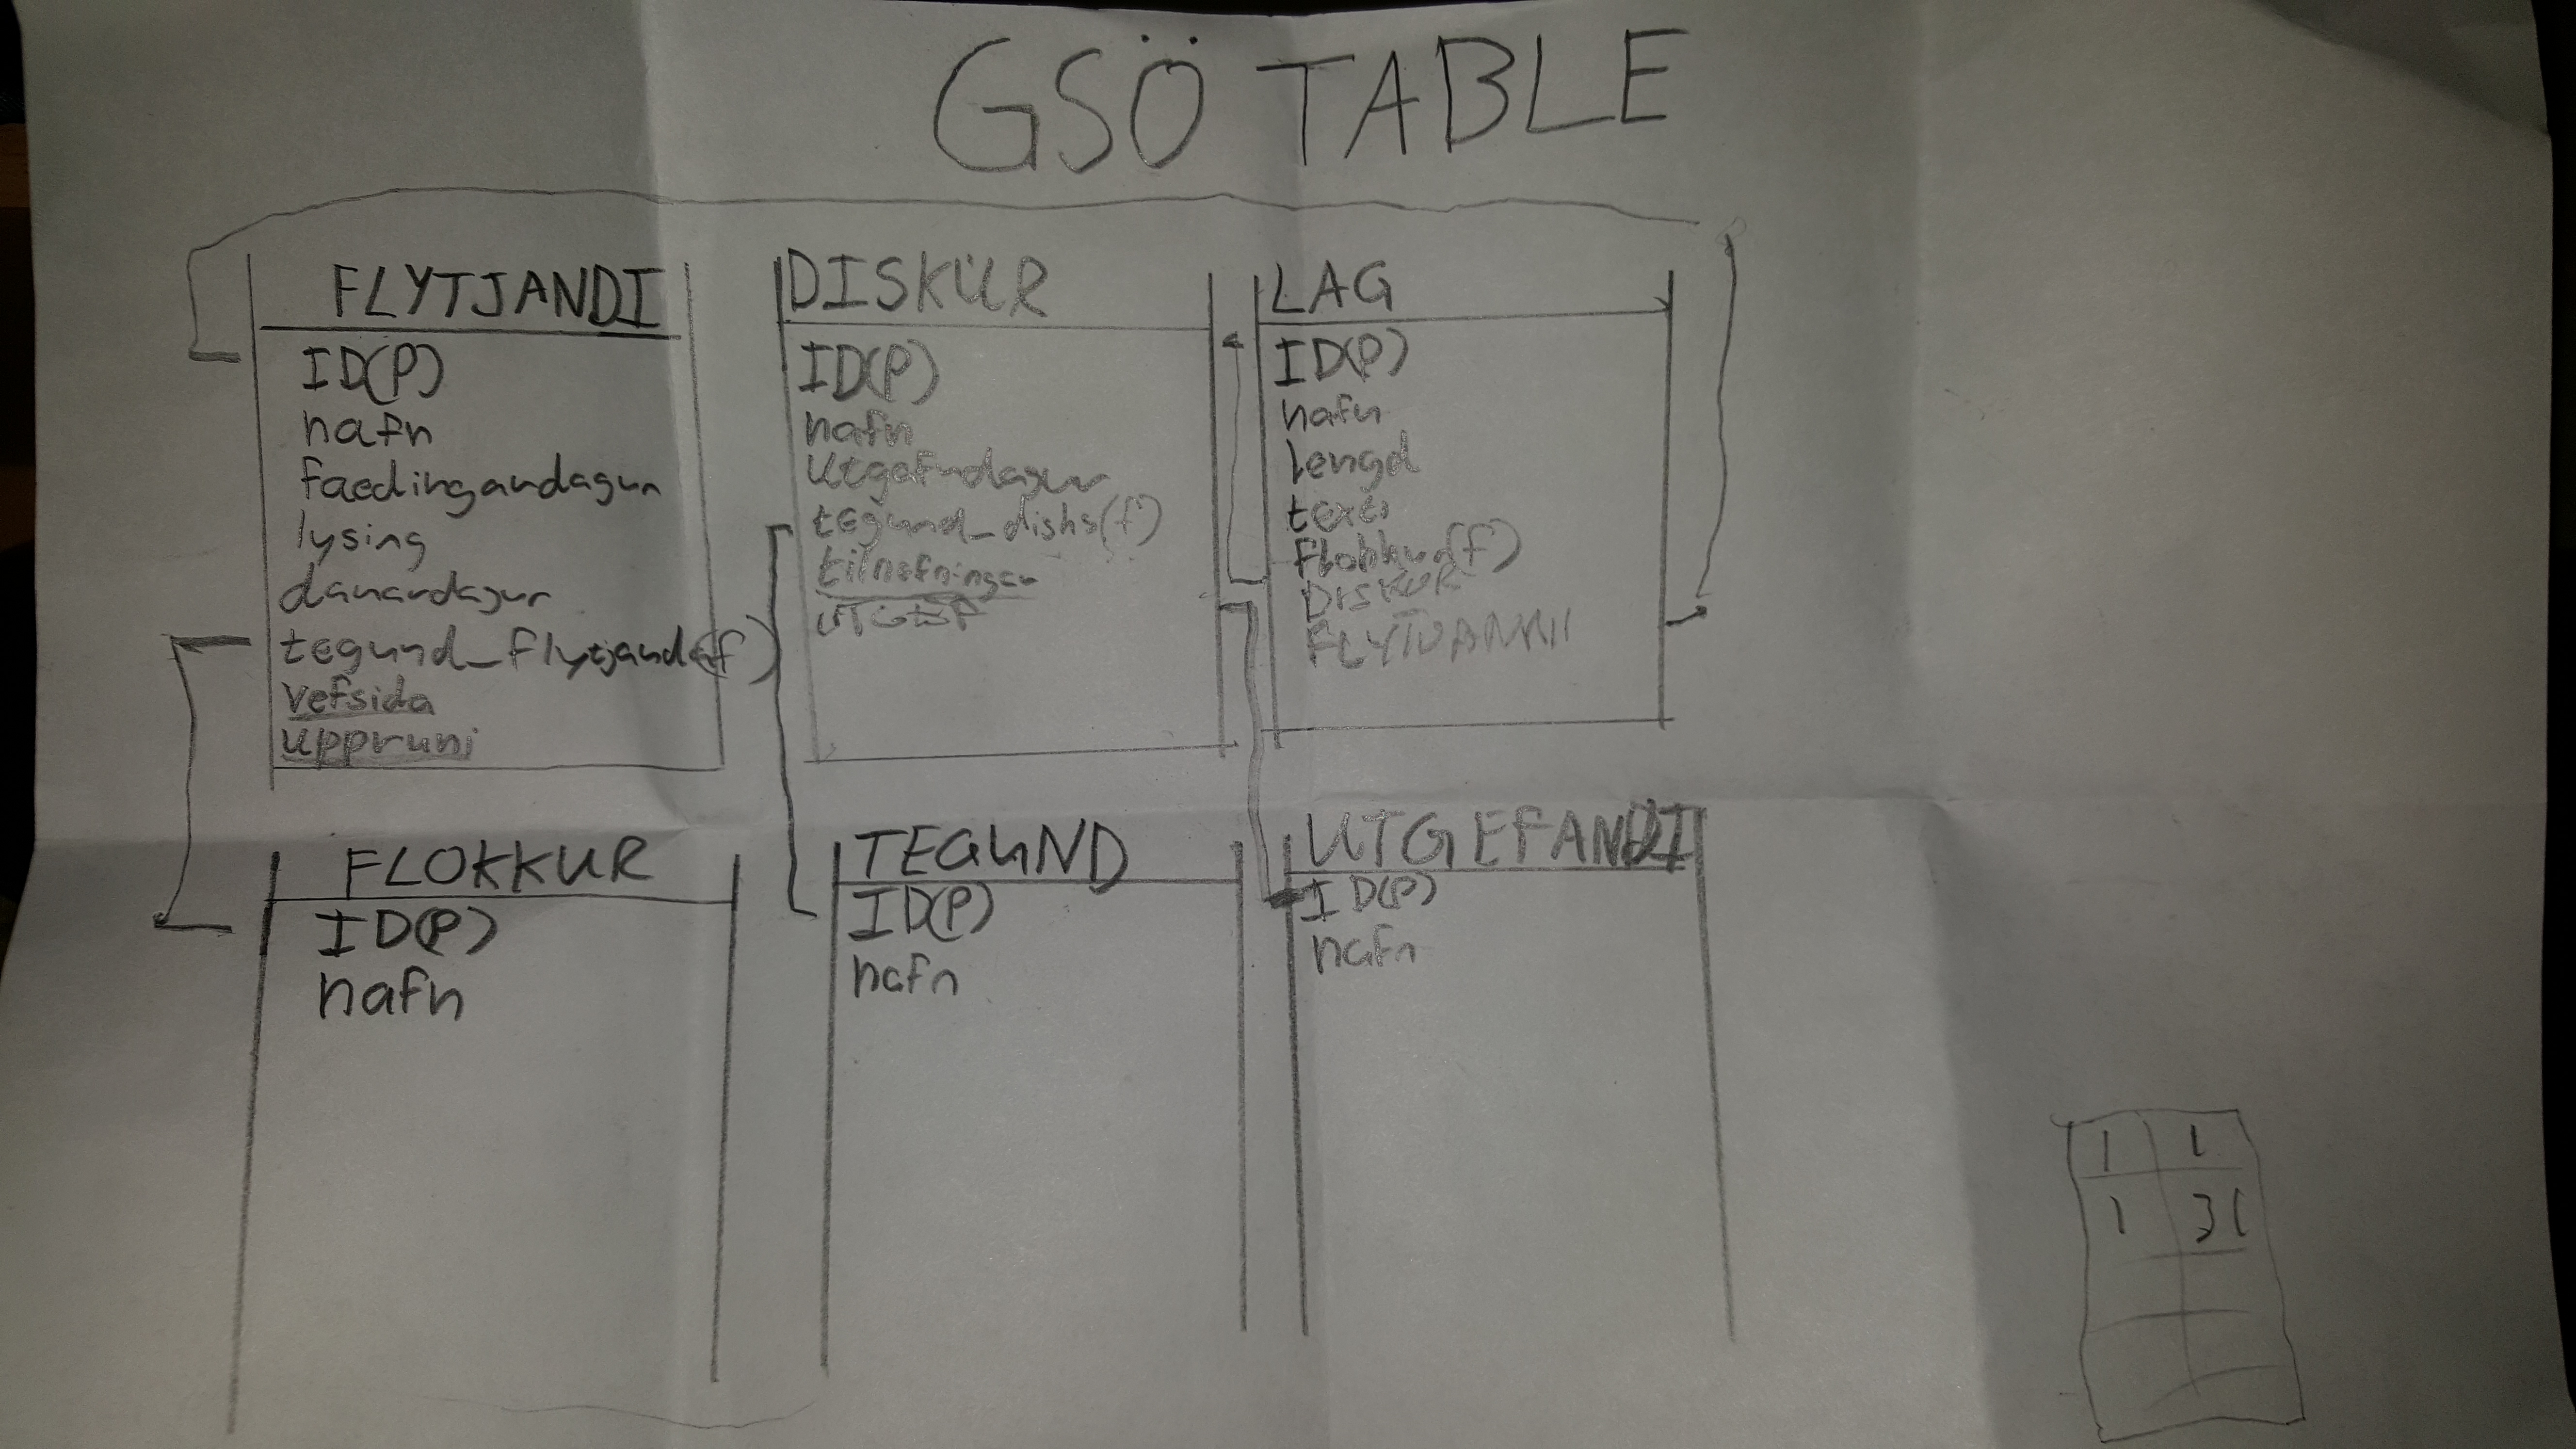 GSÖ TABLE
FLYTJANDI
ID(P)
nafn
faedingardagur
lysing
danardagur
tegund_flytjandi(f)
vefsida
uppruni
DISKUR
ID(P)
nafn
utgafudagur
tegund_disks(f)
LAG
ID(P)
nafn
lengd
texti
DISKUR
FLOKKUR
ID(P)
nafn
TEGUND
ID(P)
nafn
UTGEFANDI
ID(P)
nafn